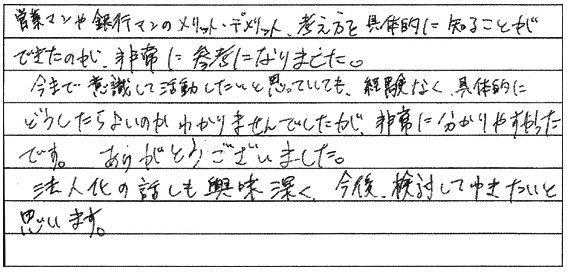 営業マンや銀行マンのメリット・デメリット、考え方を具体的に知ることが
できたのが、非常に参考になりました。
今まで意識して活動したいと思っていても、経験なく、具体的に
どうしたらよいのかわかりませんでしたが、非常に分かりやすかった
です。ありがとうございました。
法人化の話しも興味深く、今後、検討してゆきたいと
思います。